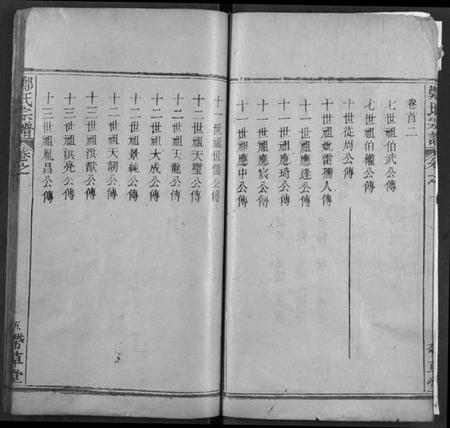 鄭氏宗譜
卷首二
七世祖伯武公傳
七世祖伯權公傳
十世從周公傳
十世妣雷孺人傳
十一世祖應逢公傳
十一世祖應琦公傳
十一世祖應宸公傳
十一世祖應中公傳
十一世祖世儒公傳
十二世天璽公傳
十二世天龍公傳
十二世大成公傳
十二世景純公傳
十二世天韌公傳
十三世祖洪猷公傳
十三世祖洪亮公傳
十三世祖胤昌公傳
鄭氏宗譜
卷之
五
帶草堂